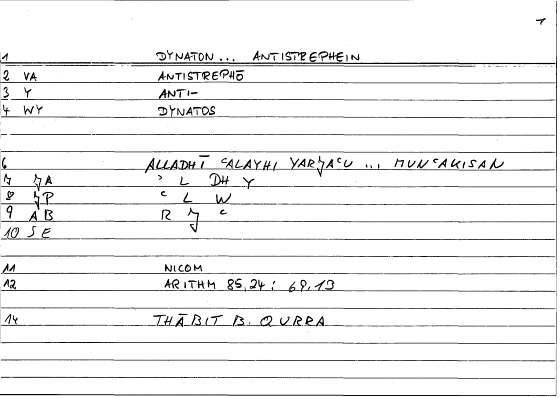 1
1 DYNATON... ANTISTREPHEIN
2 VA ANTISTREPHŌ
3 Y ANTI-
4 WY DYNATOS
6 ALLADHĪ ᶜALAYHI YARJAᶜU ... MUNᶜAKISAN
7 JA ʾ L DH Y
8 JP ᶜ L W
9 AB R J ᶜ
10 SE
11 NICOM
12 ARITHM 85,24 : 69.13
14 THĀBIT B. QURRA